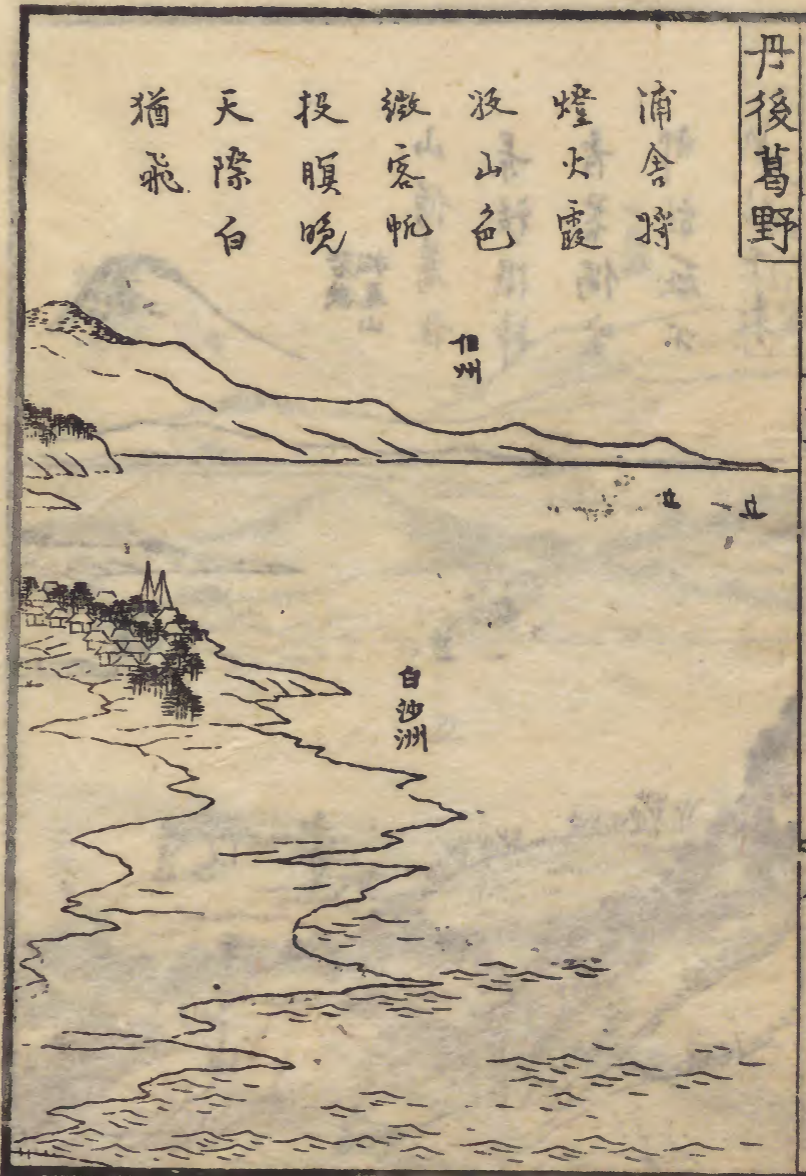 丹後葛野
浦舎将
燈火霞
收山色
微客帆
投暝晩
天際白
猶飛
但州
白沙洲